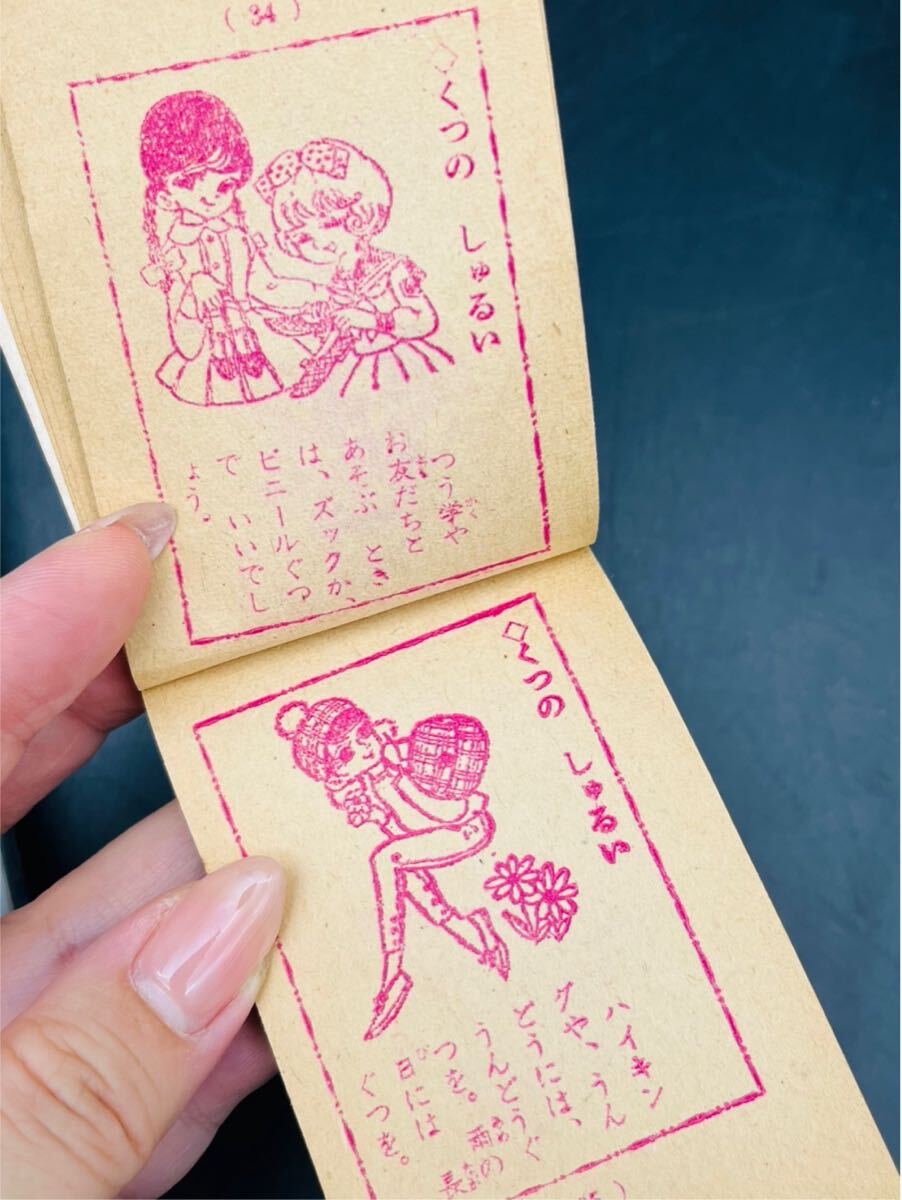 (34)
◇くつの しゅるい
つう学や
お友だちと
あそぶ とき
は、ズックか、
ビニールぐつ
で いいでし
ょう。
◇くつの しゅるい
ハイキン
グや、うん
どうには、
うんどうぐ
つを。雨の
日には 長
ぐつを。